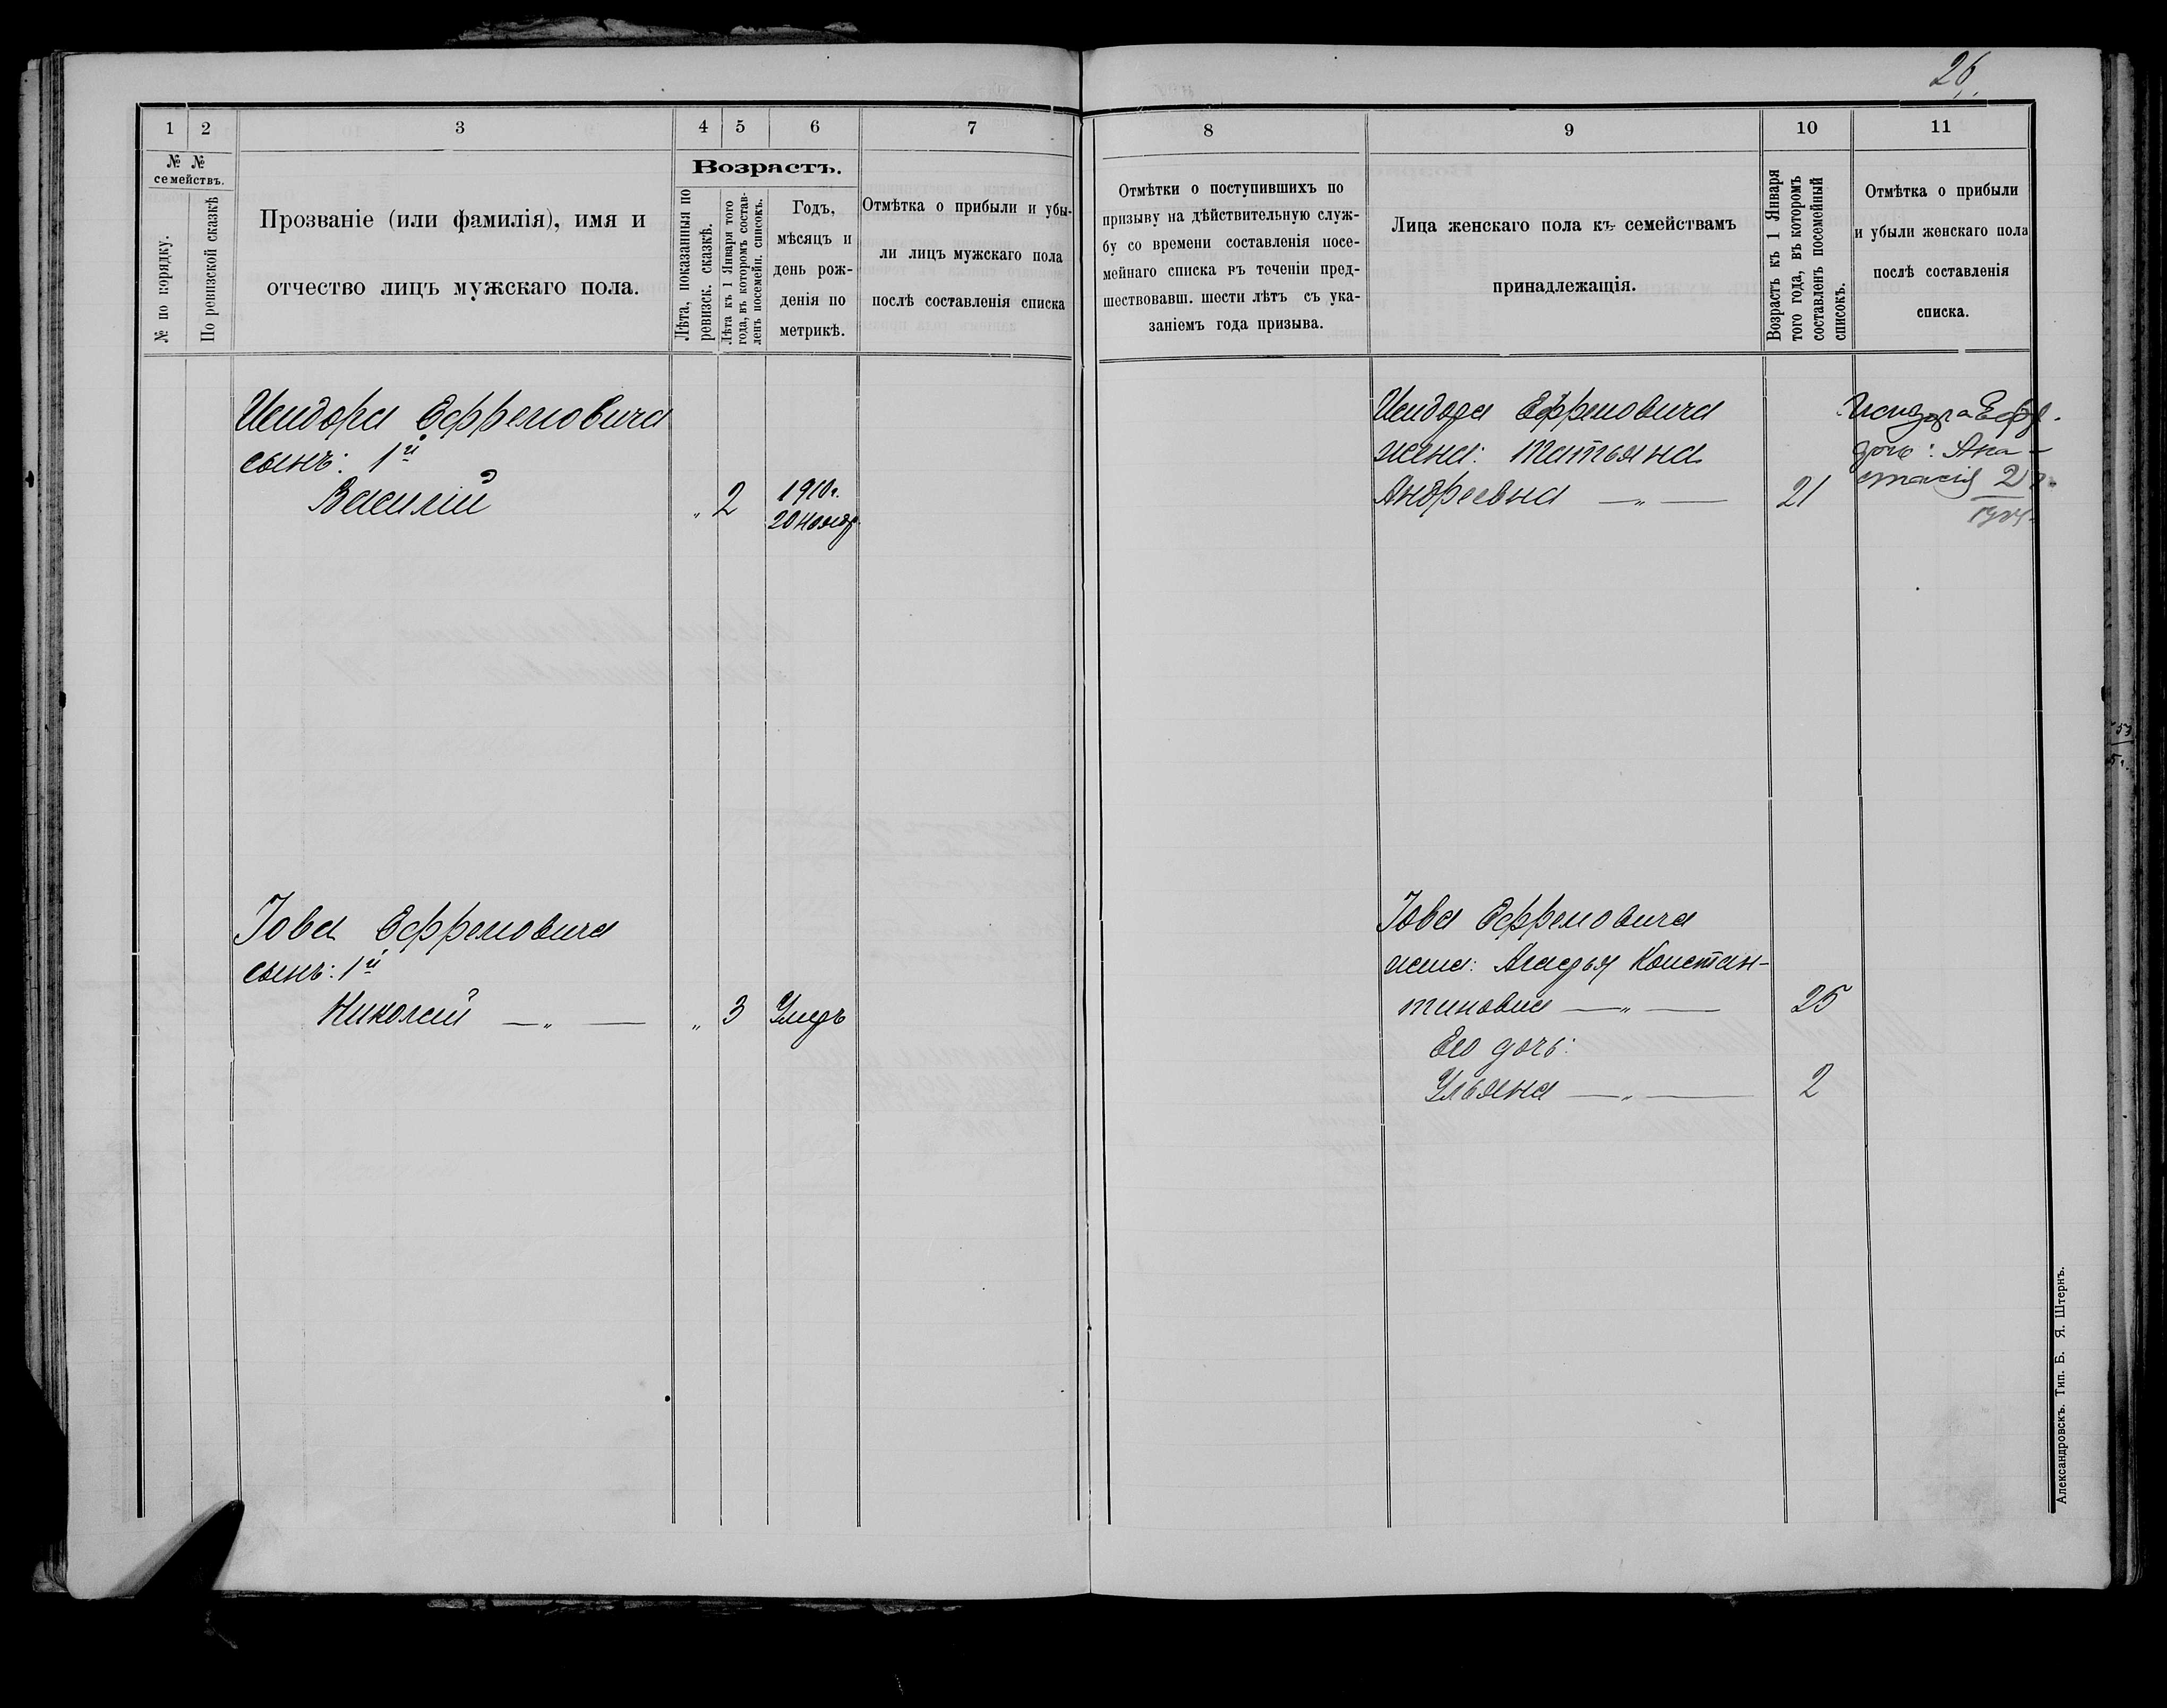 26.
1
2
3
4
5
6
7
№ №
семействъ.
№ по порядку.
По ревизской сказкѣ
Прозваніе (или фамилія), имя и
отчество лицъ мужскаго пола.
Возрастъ.
Лѣта, показанныя по
ревизск. сказкѣ.
Лѣта къ 1 Января того
года, въ которомъ состав-
ленъ посемейн. списокъ.
Годъ,
мѣсяцъ и
день рож-
денія по
метрикѣ.
Отмѣтка о прибыли и убы-
ли лицъ мужскаго пола
послѣ составленія списка
Исидора Ефремовича
сынъ: 1й
Василій " 2 1910г.
20 ноябр.
Іова Ефремовича
сынъ: 1й
Николай — " — " 3
8
9
10
11
Отмѣтки о поступившихъ по
призыву на дѣйствительную служ-
бу со времени составленія посе-
мейнаго списка въ теченіи пред-
шествовавш. шести лѣтъ съ ука-
заніемъ года призыва.
Лица женскаго пола къ семействамъ
принадлежащія.
Возрастъ къ 1 Января
того года, въ которомъ
составленъ посемейный
списокъ.
Отмѣтка о прибыли
и убыли женскаго пола
послѣ составленія
списка.
Исидора Ефремовича
жена: Татьяна
Андреевна — " — 21
Исидора Ефр.
дочь: Ана-
стасія 2
Іова Ефремовича
жена: Агафья Констан-
тиновна — " — 25
Его дочь:
Ульяна — " — 2
Александровскъ. Тип. Б. Я. Штернъ.